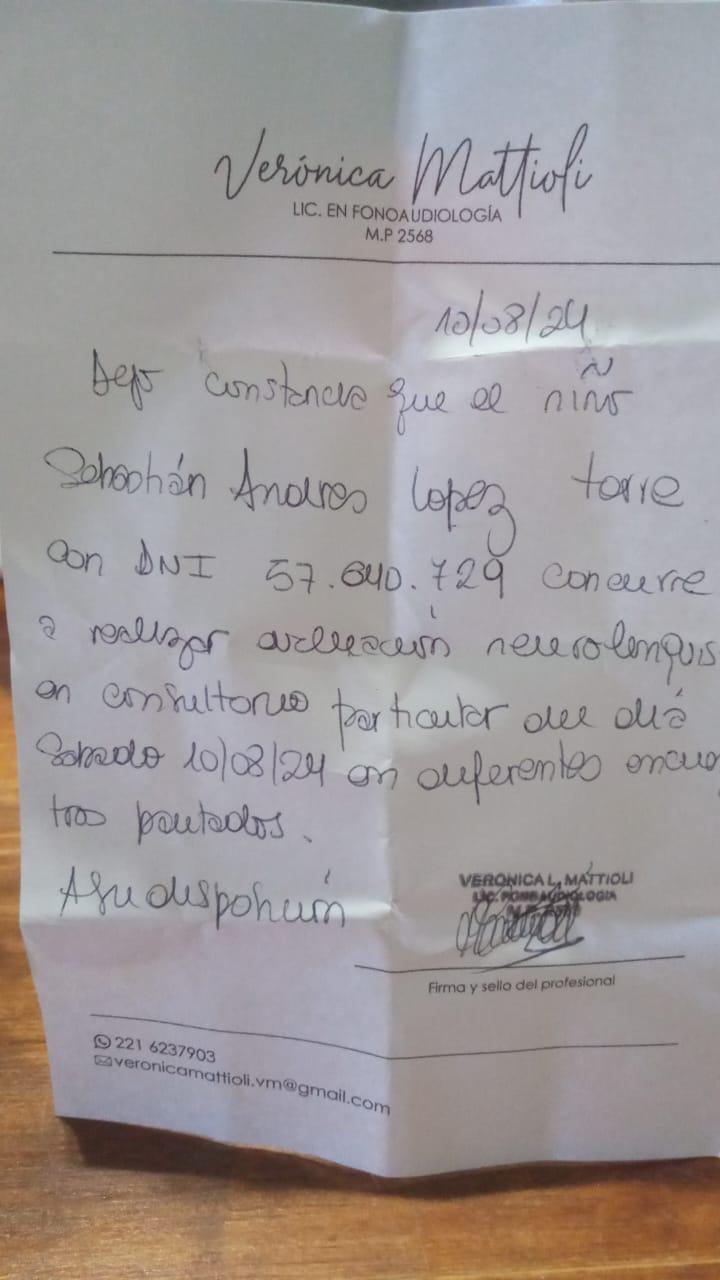 Verónica Mattioli
LIC. EN FONOAUDIOLOGÍA
M.P 2568
10/08/24
Dejo constancia que el niño
Sebastián Andres Lopez torre
con DNI 57.640.729 concurre
a realizar evaluación neurolenguis
en consultorio particular del día
Sabado 10/08/24 en diferentes encuen
tros pautados.
A su disposición
VERONICA L. MATTIOLI
LIC. FONOAUDIOLOGIA
Firma y sello del profesional
221 6237903
veronicamattioli.vm@gmail.com